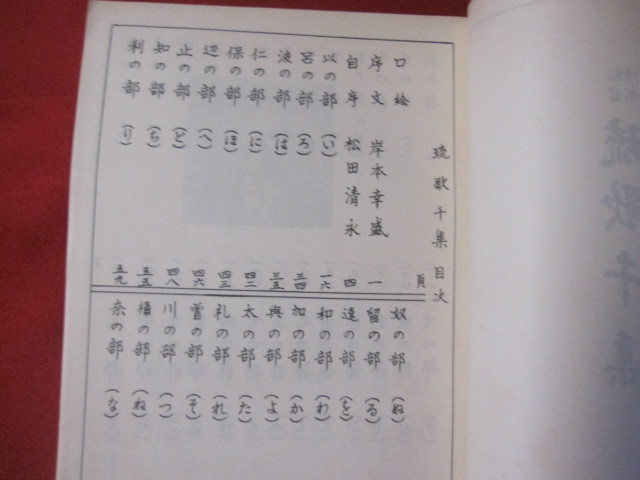 琉歌千集 目次
頁
口絵
序文 岸本幸盛 一
自序 松田清永 四
以の部 (い) 一六
呂の部 (ろ) 三四
波の部 (は) 三五
仁の部 (に) 四二
保の部 (ほ) 四三
辺の部 (へ) 四六
止の部 (と) 四八
知の部 (ち) 五五
利の部 (り) 五九
奴の部 (ぬ)
留の部 (る)
遠の部 (を)
和の部 (わ)
加の部 (か)
與の部 (よ)
太の部 (た)
礼の部 (れ)
曽の部 (そ)
川の部 (つ)
の部 (ね)
奈の部 (な)